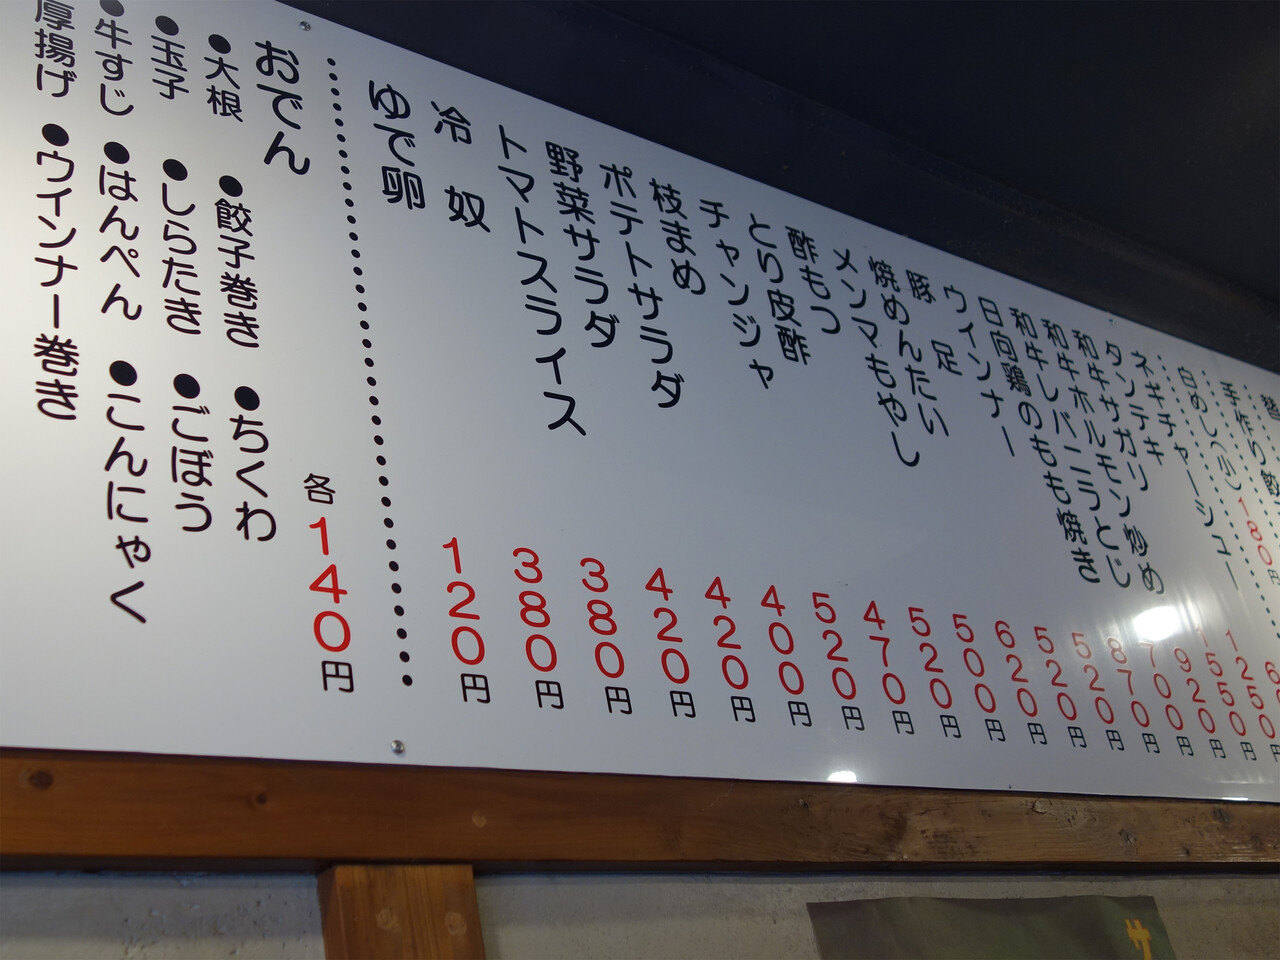 手作り餃
白めし
180円
ネギチャーシュー
タンテキ 1250円
和牛サガリ 1550円
和牛ホルモン炒め 920円
和牛レバニラとじ 700円
日向鶏のもも焼き 870円
ウインナー 520円
豚足 520円
焼めんたい 620円
メンマもやし 500円
酢もつ 520円
とり皮酢 470円
チャンジャ 520円
枝まめ 400円
ポテトサラダ 420円
野菜サラダ 420円
トマトスライス 380円
冷奴 380円
ゆで卵 120円
おでん 各140円
●大根 ●餃子巻き ●ちくわ
●玉子 ●しらたき ●ごぼう
●牛すじ ●はんぺん ●こんにゃく
厚揚げ ●ウインナー巻き
サ